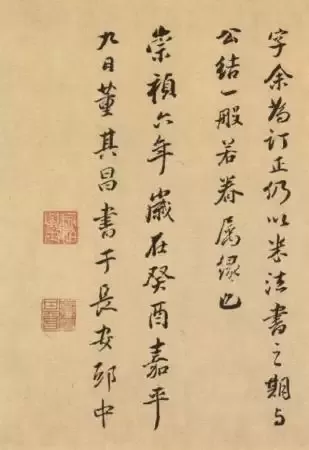 字余為訂正仍以米法書之期与
公結一般若眷属緣也
崇禎六年歲在癸酉嘉平
九日董其昌書于長安邸中